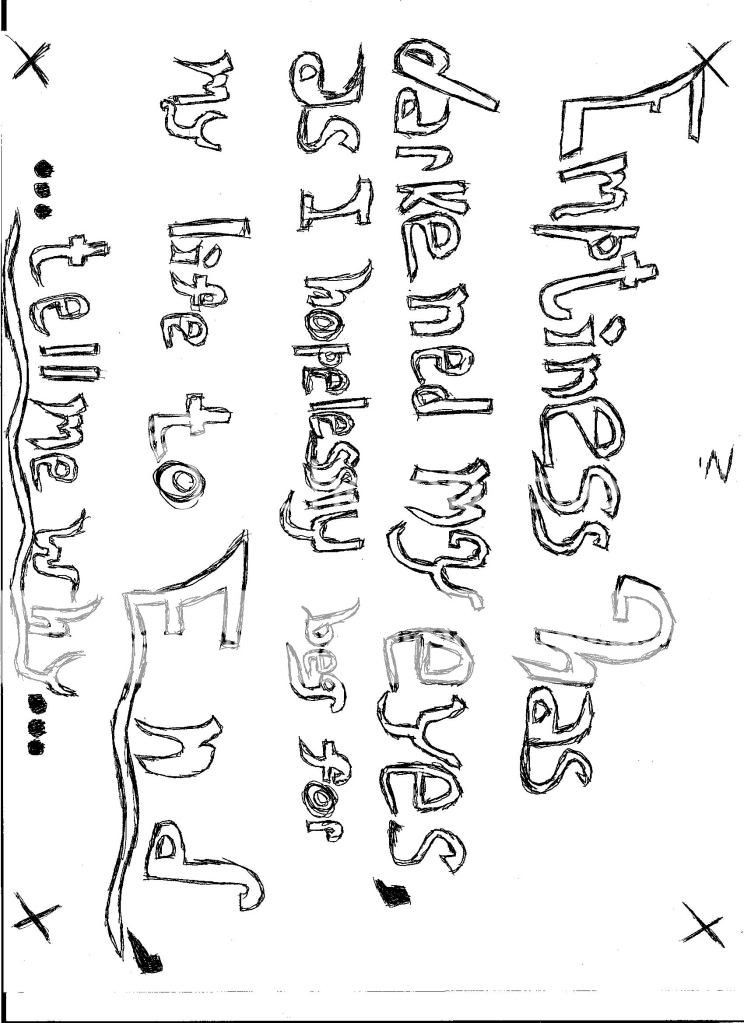 Emptiness has
darkened my eyes,
as I hopelessly beg for
my life to End,
...tell me why...